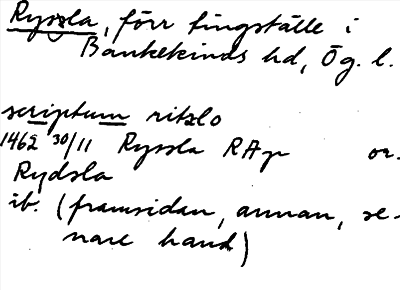 Ryssla, förr tingställe i
Bankekinds hd, Ög. l.
scriptum ritzlo
1462 30/11 Ryssla RAp or.
Rydsla
ib. (framsidan, annan, se-
nare hand)